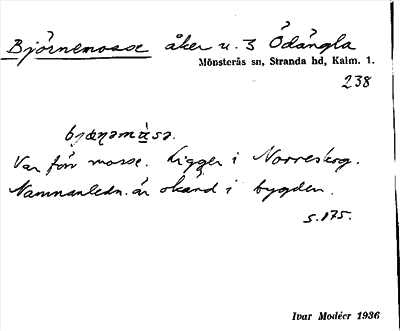 Björnemosse åker u. 3 Ödängla
Mönsterås sn, Stranda hd, Kalm. 1.
238
Var förr mosse. Ligger i Norreskog.
Namnanledn. är okänd i bygden.
S. 175.
Ivar Modéer 1936